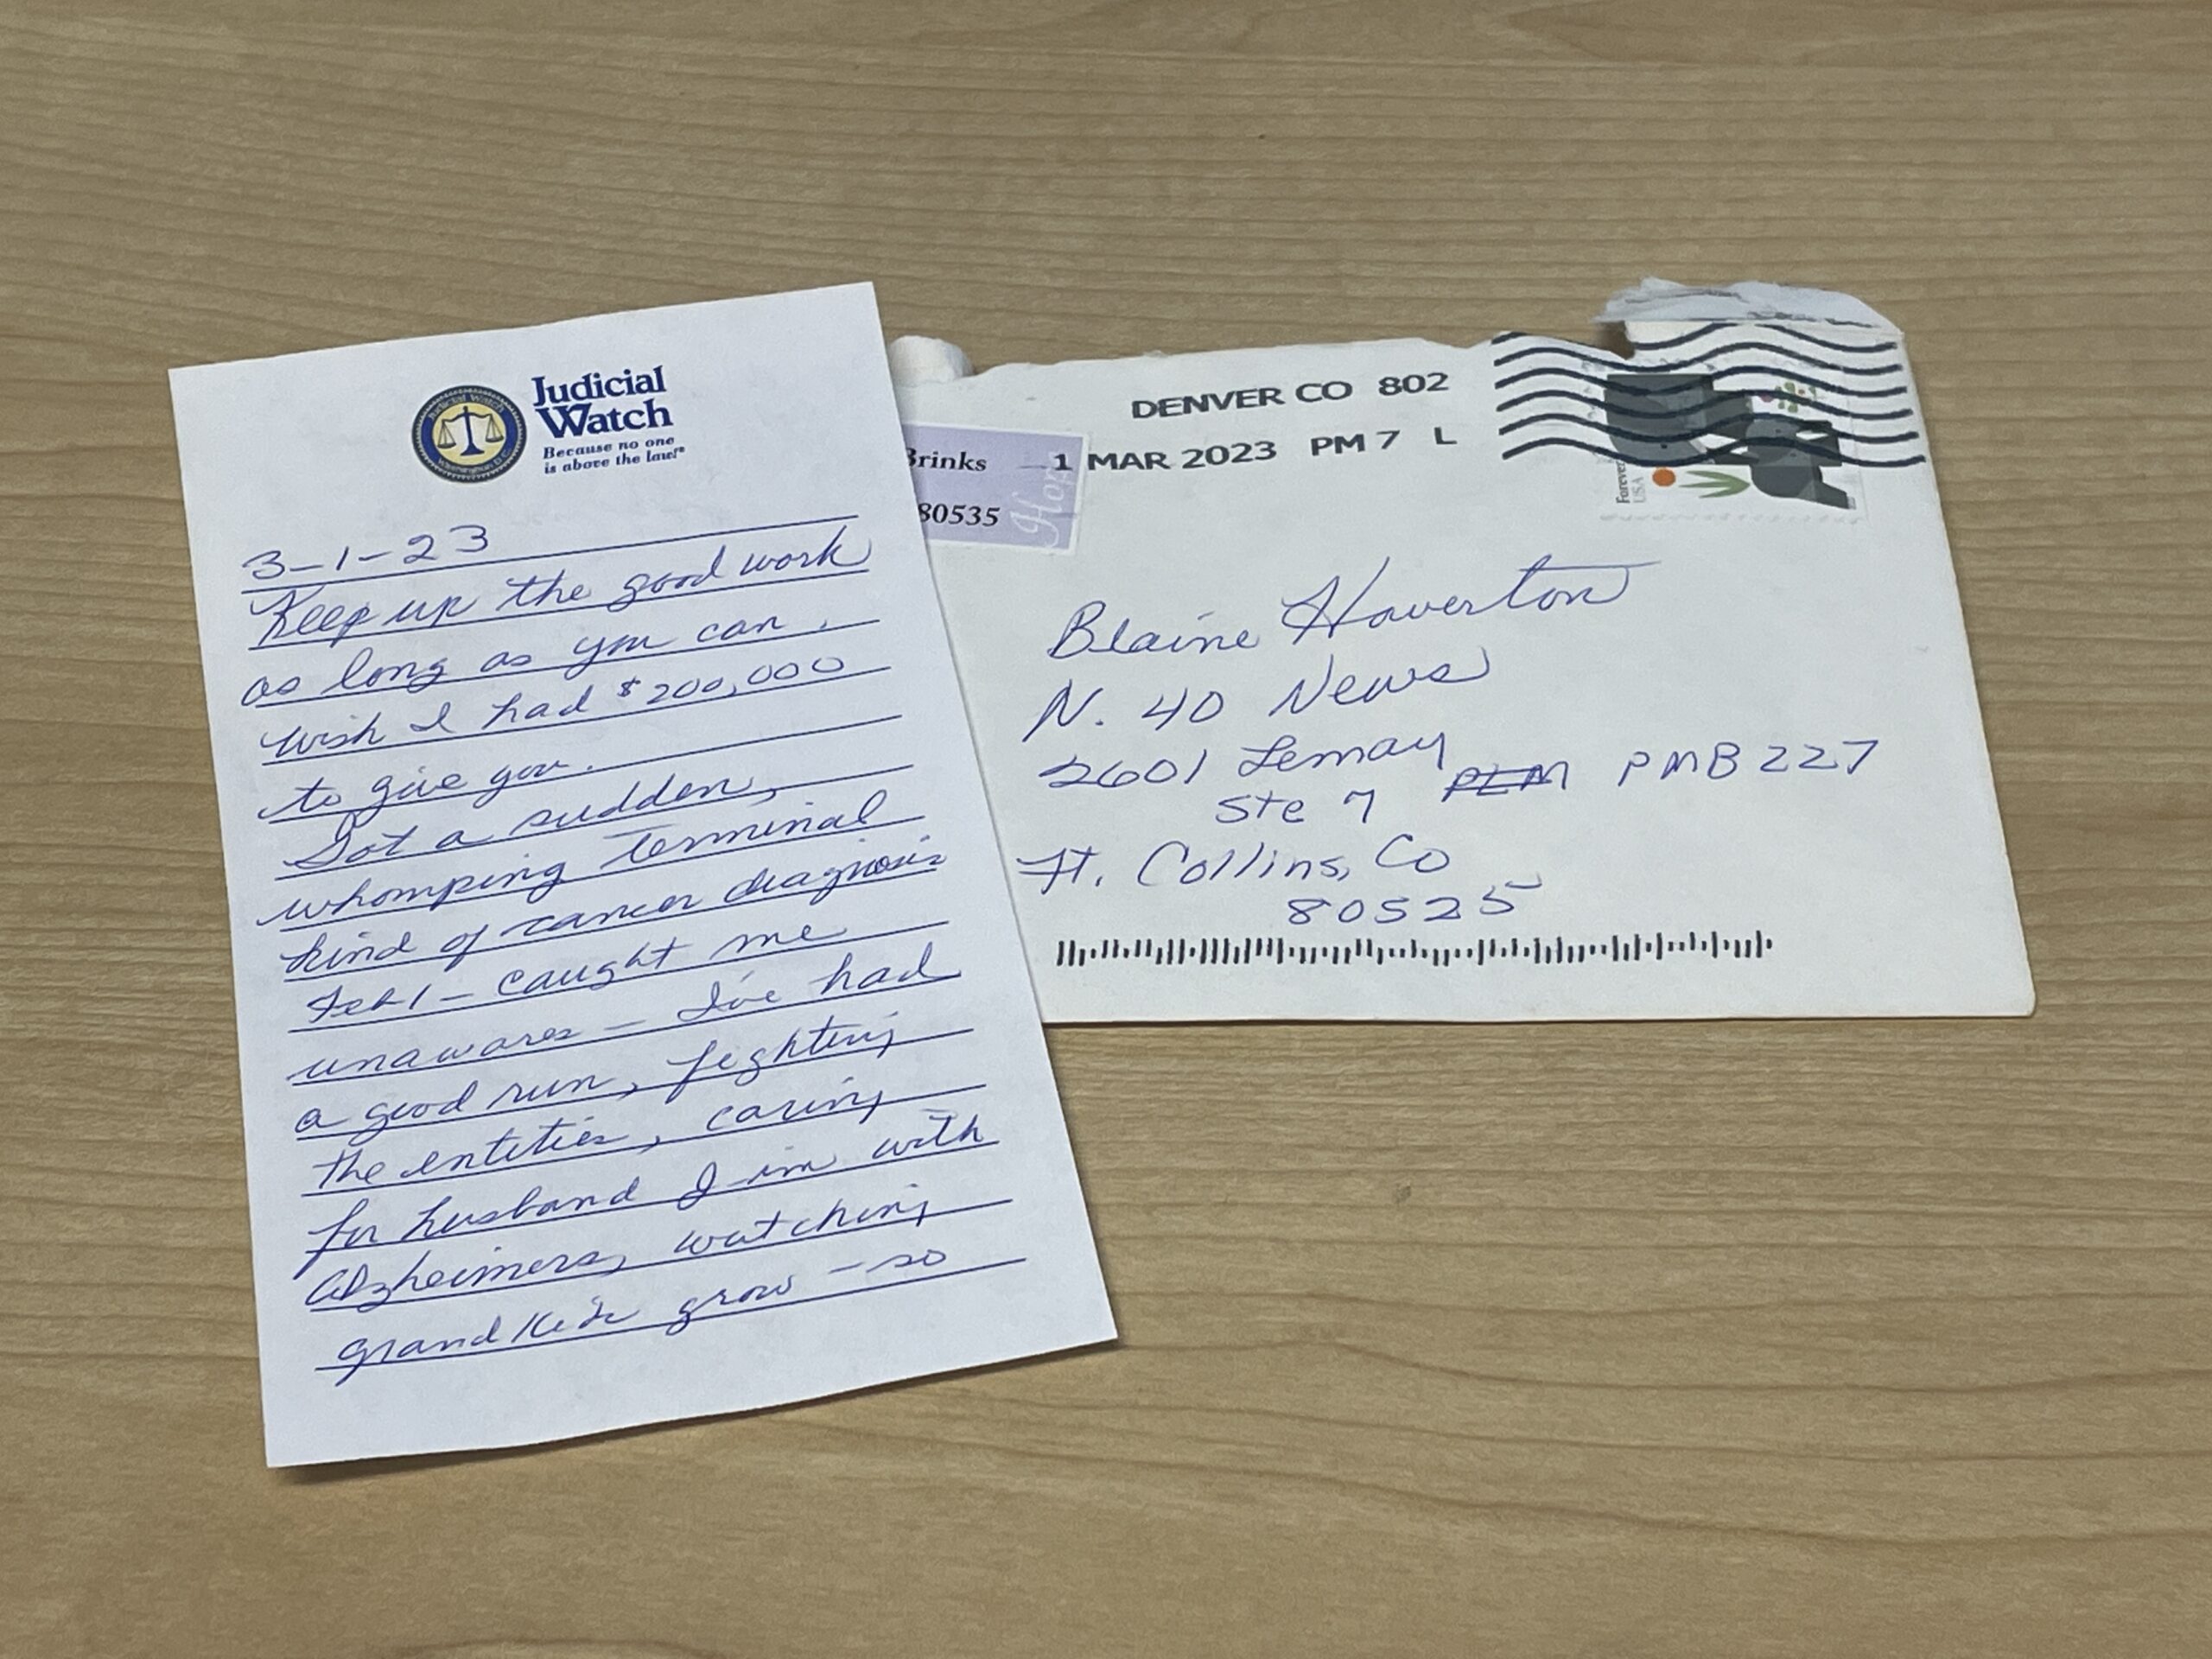 Judicial
Watch
Because no one
is above the law!®
3-1-23
Keep up the good work
as long as you can,
wish I had $200,000
to give you.
Got a sudden,
whomping terminal
kind of cancer diagnosis
Feb 1 - caught me
unawares - I've had
a good run, fighting
the entities, caring
for husband I'm with
Alzheimers, watching
grandkids grow - so
Brinks
80535
Hop
DENVER CO 802
1 MAR 2023 PM 7 L
Forever
USA
Blaine Howerton
N. 40 News
2601 Lemay
PMB 227
Ste 7
Ft. Collins, Co
80525